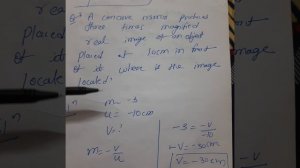 Q.3 A concave mirror produces
three times magnified
real image of an object
placed at 10cm in front
of it where is the image
located.
m = -3
u = -10cm
V = ?
m = -v/u
-3 = -v/-10
-V = -30cm
V = -30cm